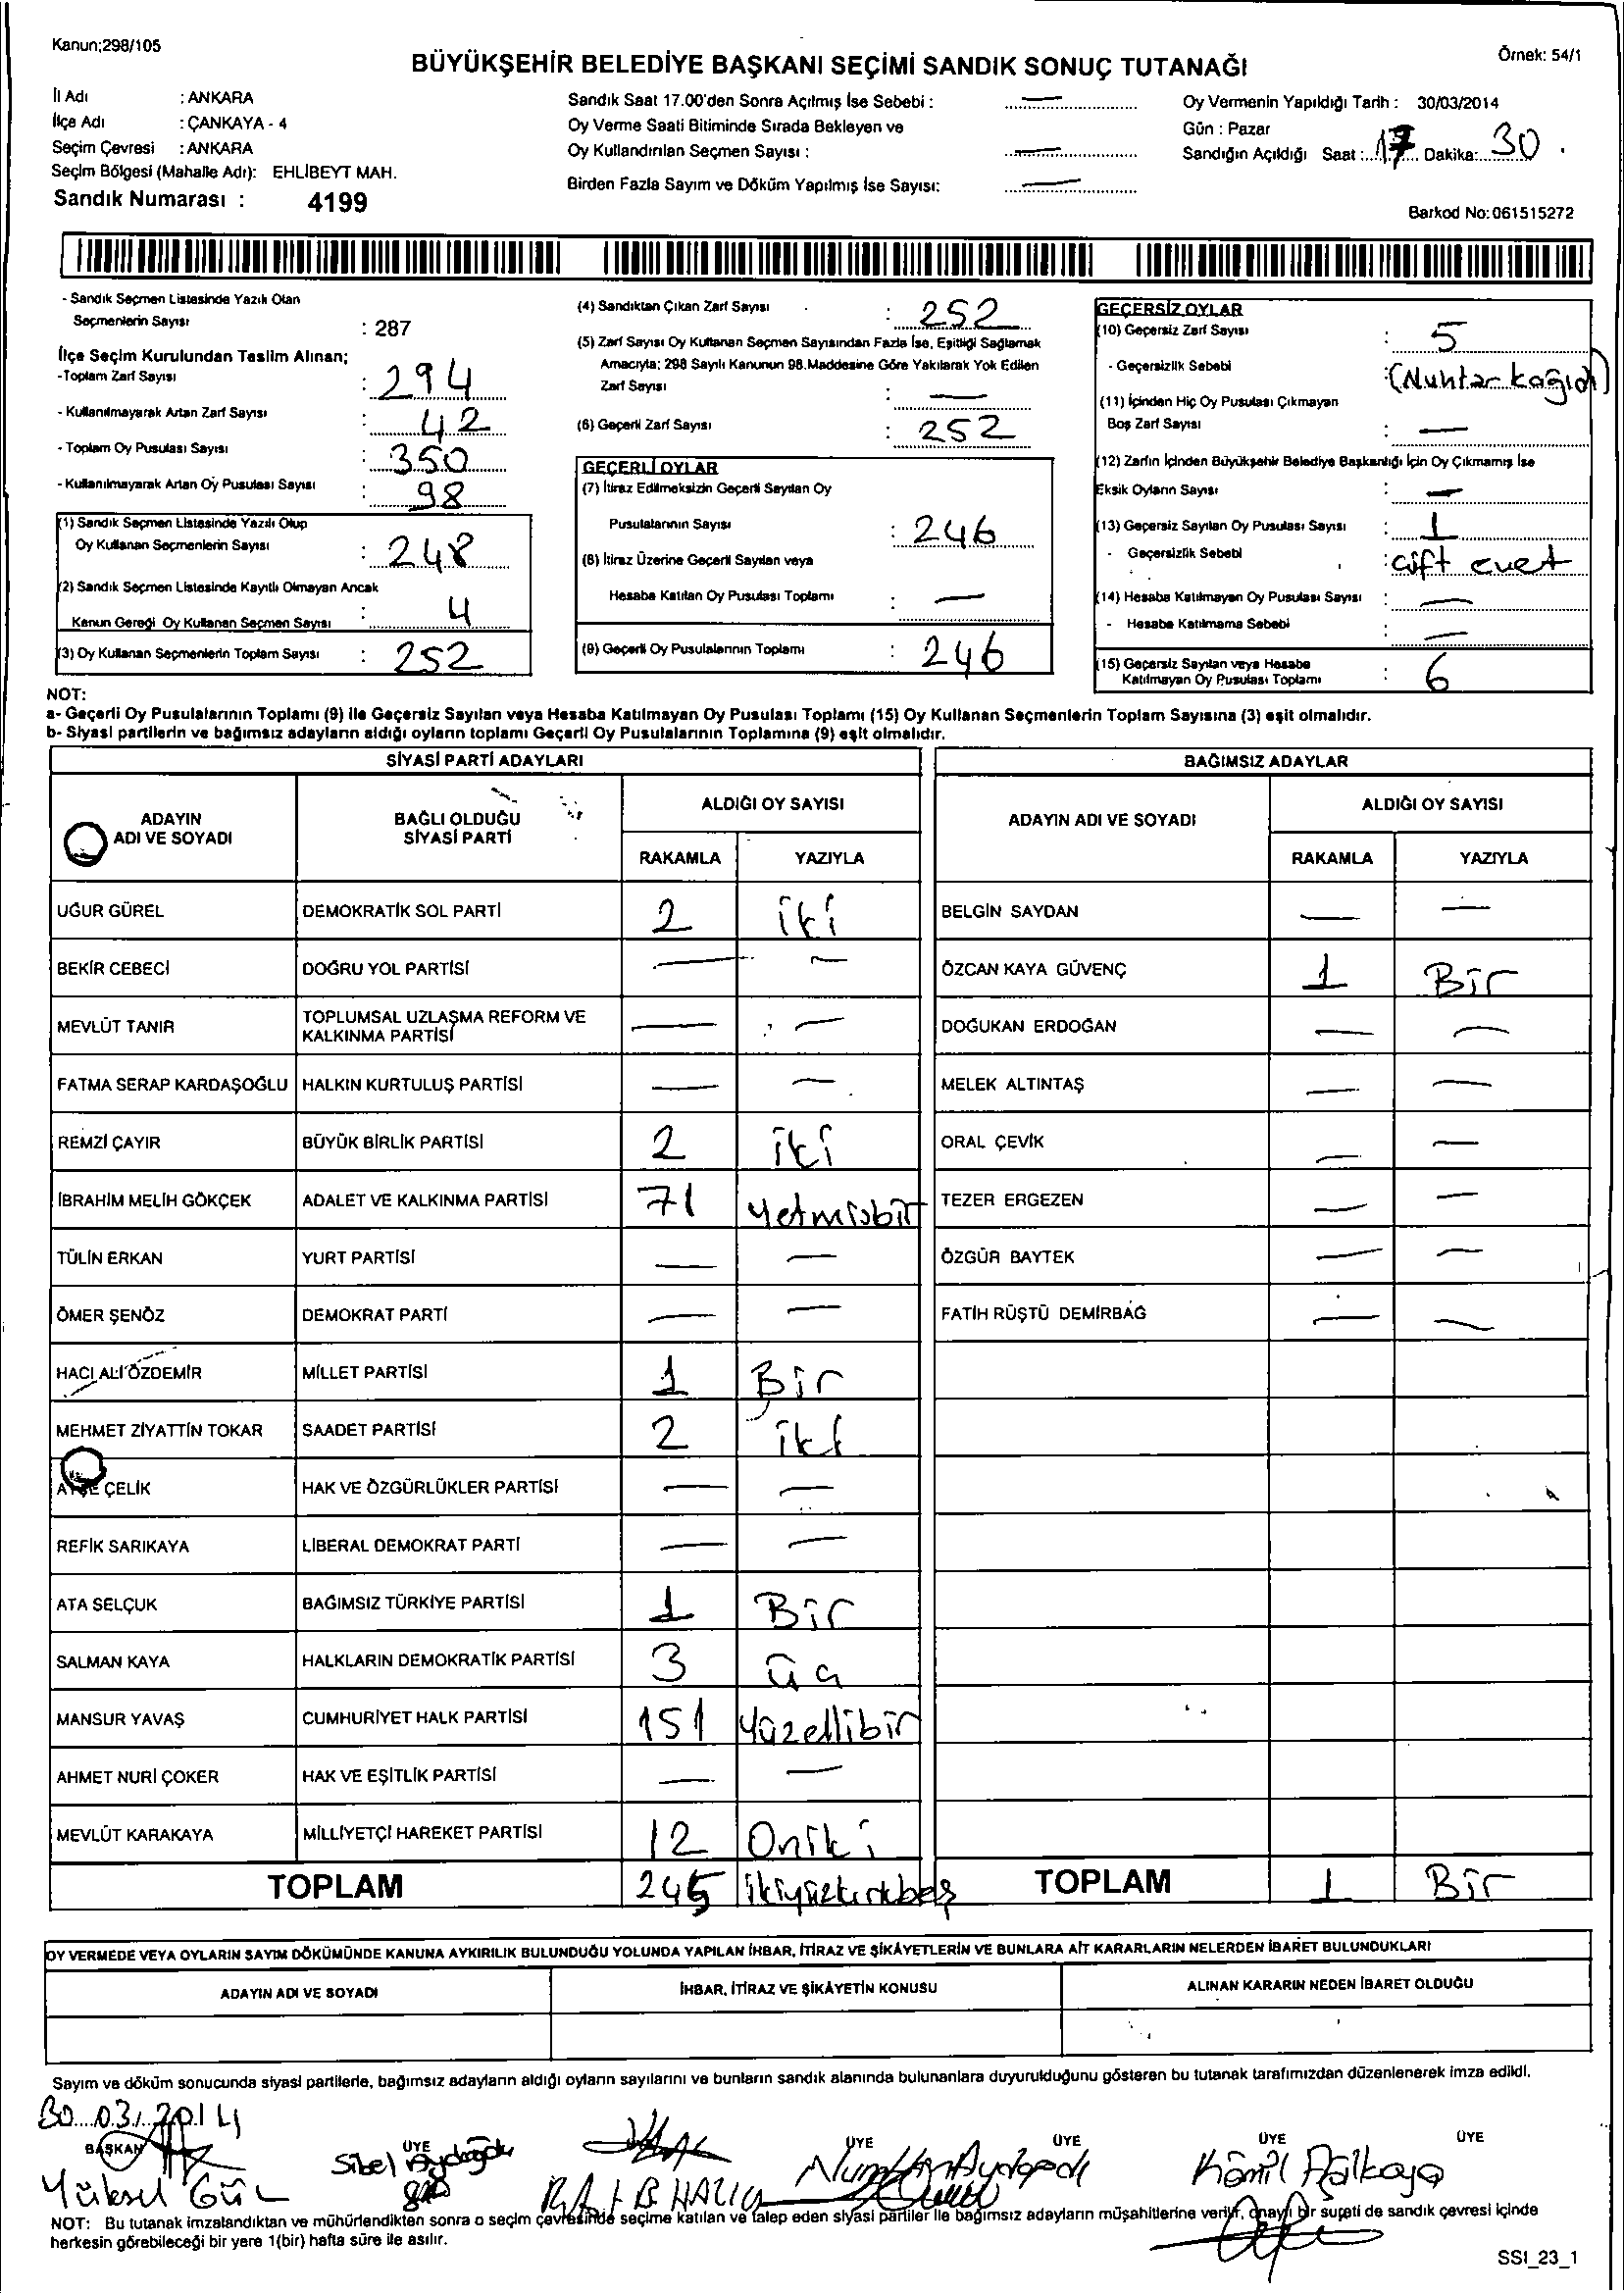 Kanun;298/105
Örnek: 54/1
BÜYÜKŞEHİR BELEDİYE BAŞKANI SEÇİMİ SANDIK SONUÇ TUTANAĞI
İl Adı : ANKARA
İlçe Adı : ÇANKAYA - 4
Seçim Çevresi : ANKARA
Seçim Bölgesi (Mahalle Adı): EHLİBEYT MAH.
Sandık Numarası : 4199
Sandık Saat 17.00'den Sonra Açılmış İse Sebebi : —
Oy Verme Saati Bitiminde Sırada Bekleyen ve
Oy Kullandırılan Seçmen Sayısı : —
Birden Fazla Sayım ve Döküm Yapılmış İse Sayısı: —
Oy Vermenin Yapıldığı Tarih : 30/03/2014
Gün : Pazar
Sandığın Açıldığı Saat : 17 Dakika: 30
Barkod No:061515272
- Sandık Seçmen Listesinde Yazılı Olan
Seçmenlerin Sayısı : 287
İlçe Seçim Kurulundan Teslim Alınan;
-Toplam Zarf Sayısı : 294
- Kullanılmayarak Artan Zarf Sayısı : 42
- Toplam Oy Pusulası Sayısı : 350
- Kullanılmayarak Artan Oy Pusulası Sayısı : 98
(1) Sandık Seçmen Listesinde Yazılı Olup
Oy Kullanan Seçmenlerin Sayısı : 248
(2) Sandık Seçmen Listesinde Kayıtlı Olmayan Ancak
Kanun Gereği Oy Kullanan Seçmen Sayısı : 4
(3) Oy Kullanan Seçmenlerin Toplam Sayısı : 252
(4) Sandıktan Çıkan Zarf Sayısı : 252
(5) Zarf Sayısı Oy Kullanan Seçmen Sayısından Fazla İse, Eşitliği Sağlamak
Amacıyla; 298 Sayılı Kanunun 98.Maddesine Göre Yakılarak Yok Edilen
Zarf Sayısı : —
(6) Geçerli Zarf Sayısı : 252
GEÇERLİ OYLAR
(7) İtiraz Edilmeksizin Geçerli Sayılan Oy
Pusulalarının Sayısı : 246
(8) İtiraz Üzerine Geçerli Sayılan veya
Hesaba Katılan Oy Pusulası Toplamı : —
(9) Geçerli Oy Pusulalarının Toplamı : 246
GEÇERSİZ OYLAR
(10) Geçersiz Zarf Sayısı : 5
- Geçersizlik Sebebi : (Muhtar kağıdı)
(11) İçinden Hiç Oy Pusulası Çıkmayan
Boş Zarf Sayısı : —
(12) Zarfın İçinden Büyükşehir Belediye Başkanlığı İçin Oy Çıkmamış İse
Eksik Oyların Sayısı : —
(13) Geçersiz Sayılan Oy Pusulası Sayısı : 1
- Geçersizlik Sebebi : Çift evet
(14) Hesaba Katılmayan Oy Pusulası Sayısı : —
- Hesaba Katılmama Sebebi : —
(15) Geçersiz Sayılan veya Hesaba
Katılmayan Oy Pusulası Toplamı : 6
NOT:
a- Geçerli Oy Pusulalarının Toplamı (9) ile Geçersiz Sayılan veya Hesaba Katılmayan Oy Pusulası Toplamı (15) Oy Kullanan Seçmenlerin Toplam Sayısına (3) eşit olmalıdır.
b- Siyasi partilerin ve bağımsız adayların aldığı oyların toplamı Geçerli Oy Pusulalarının Toplamına (9) eşit olmalıdır.
SİYASİ PARTİ ADAYLARI
ADAYIN ADI VE SOYADI
BAĞLI OLDUĞU SİYASİ PARTİ
ALDIĞI OY SAYISI
RAKAMLA YAZIYLA
UĞUR GÜREL DEMOKRATİK SOL PARTİ 2 iki
BEKİR CEBECİ DOĞRU YOL PARTİSİ — —
MEVLÜT TANIR TOPLUMSAL UZLAŞMA REFORM VE KALKINMA PARTİSİ — —
FATMA SERAP KARDAŞOĞLU HALKIN KURTULUŞ PARTİSİ — —
REMZİ ÇAYIR BÜYÜK BİRLİK PARTİSİ 2 iki
İBRAHİM MELİH GÖKÇEK ADALET VE KALKINMA PARTİSİ 71 Yetmisbir
TÜLİN ERKAN YURT PARTİSİ — —
ÖMER ŞENÖZ DEMOKRAT PARTİ — —
HACI ALİ ÖZDEMİR MİLLET PARTİSİ 1 Bir
MEHMET ZİYATTİN TOKAR SAADET PARTİSİ 2 iki
AYŞE ÇELİK HAK VE ÖZGÜRLÜKLER PARTİSİ — —
REFİK SARIKAYA LİBERAL DEMOKRAT PARTİ — —
ATA SELÇUK BAĞIMSIZ TÜRKİYE PARTİSİ 1 Bir
SALMAN KAYA HALKLARIN DEMOKRATİK PARTİSİ 3 üç
MANSUR YAVAŞ CUMHURİYET HALK PARTİSİ 151 Yüzellibir
AHMET NURİ ÇOKER HAK VE EŞİTLİK PARTİSİ — —
MEVLÜT KARAKAYA MİLLİYETÇİ HAREKET PARTİSİ 12 Oniki
TOPLAM 245 ikiyüzkırkbeş
BAĞIMSIZ ADAYLAR
ADAYIN ADI VE SOYADI
ALDIĞI OY SAYISI
RAKAMLA YAZIYLA
BELGİN SAYDAN — —
ÖZCAN KAYA GÜVENÇ 1 Bir
DOĞUKAN ERDOĞAN — —
MELEK ALTINTAŞ — —
ORAL ÇEVİK — —
TEZER ERGEZEN — —
ÖZGÜR BAYTEK — —
FATİH RÜŞTÜ DEMİRBAĞ — —
TOPLAM 1 Bir
OY VERMEDE VEYA OYLARIN SAYIM DÖKÜMÜNDE KANUNA AYKIRILIK BULUNDUĞU YOLUNDA YAPILAN İHBAR, İTİRAZ VE ŞİKÂYETLERİN VE BUNLARA AİT KARARLARIN NELERDEN İBARET BULUNDUKLARI
ADAYIN ADI VE SOYADI
İHBAR, İTİRAZ VE ŞİKÂYETİN KONUSU
ALINAN KARARIN NEDEN İBARET OLDUĞU
Sayım ve döküm sonucunda siyasi partilerle, bağımsız adayların aldığı oyların sayılarını ve bunların sandık alanında bulunanlara duyurulduğunu gösteren bu tutanak tarafımızdan düzenlenerek imza edildi.
30.03.2014
BAŞKAN ÜYE ÜYE ÜYE ÜYE ÜYE
Yüksel Gül
Sibel Aydoğdu
Kâmil Açıkkaya
NOT: Bu tutanak imzalandıktan ve mühürlendikten sonra o seçim çevresinde seçime katılan ve talep eden siyasi partiler ile bağımsız adayların müşahitlerine verilir, onaylı bir sureti de sandık çevresi içinde
herkesin görebileceği bir yere 1(bir) hafta süre ile asılır.
SSI_23_1